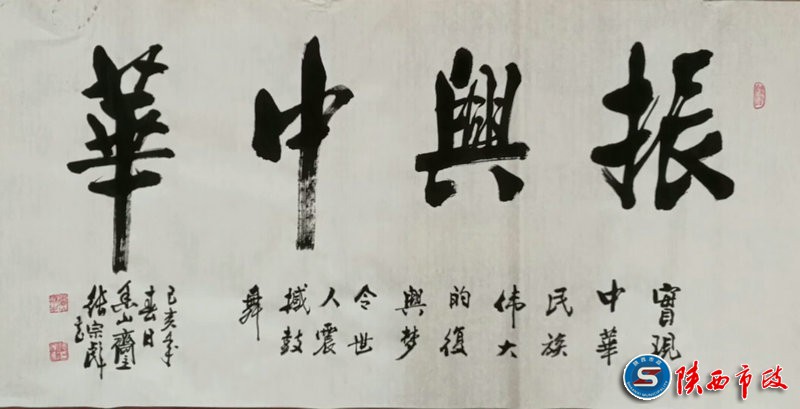 振興中華
實現
中華
民族
伟大
的復
興梦
令世
人震
撼鼓
舞
己亥年
春日
山齋
張宗彪
陕西市政